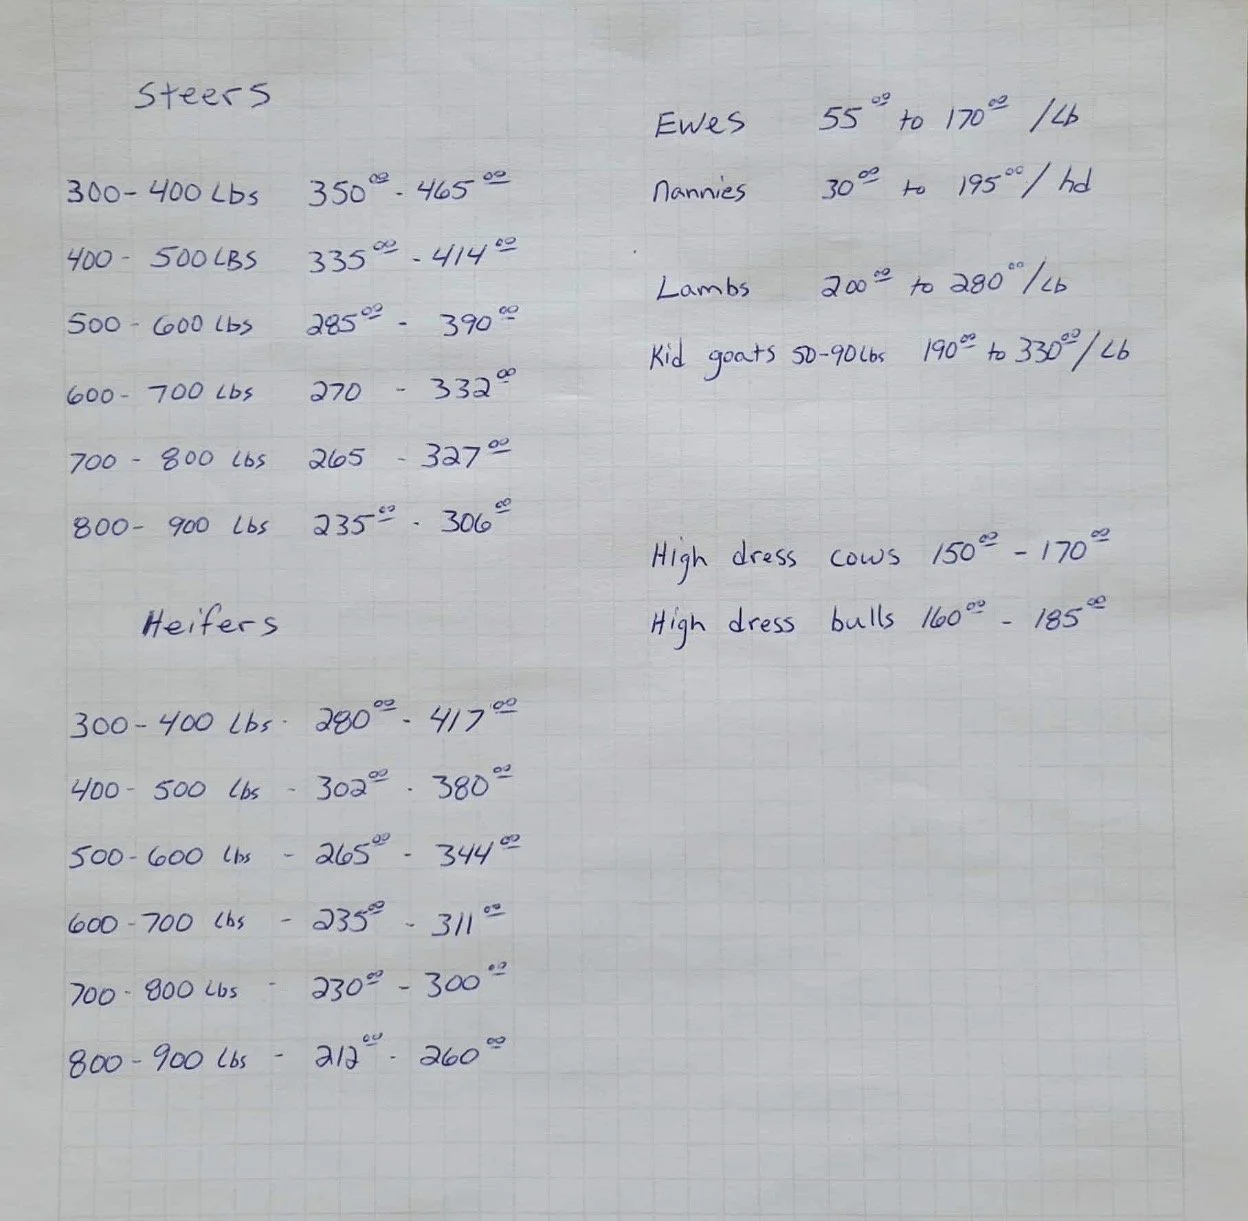 Steers
300-400 Lbs 350.00 - 465.00
400 - 500 LBS 335.00 - 414.00
500 - 600 Lbs 285.00 - 390.00
600 - 700 Lbs 270 - 332.00
700 - 800 Lbs 265 - 327.00
800 - 900 Lbs 235.00 - 306.00
Heifers
300-400 Lbs - 280.00 - 417.00
400 - 500 Lbs - 302.00 - 380.00
500-600 Lbs - 265.00 - 344.00
600-700 Lbs - 235.00 - 311.00
700-800 Lbs - 230.00 - 300.00
800-900 Lbs - 212.00 - 260.00
Ewes 55.00 to 170.00 /Lb
Nannies 30.00 to 195.00 / hd
Lambs 200.00 to 280.00 /Lb
Kid goats 50-90 Lbs 190.00 to 330.00 / Lb
High dress cows 150.00 - 170.00
High dress bulls 160.00 - 185.00